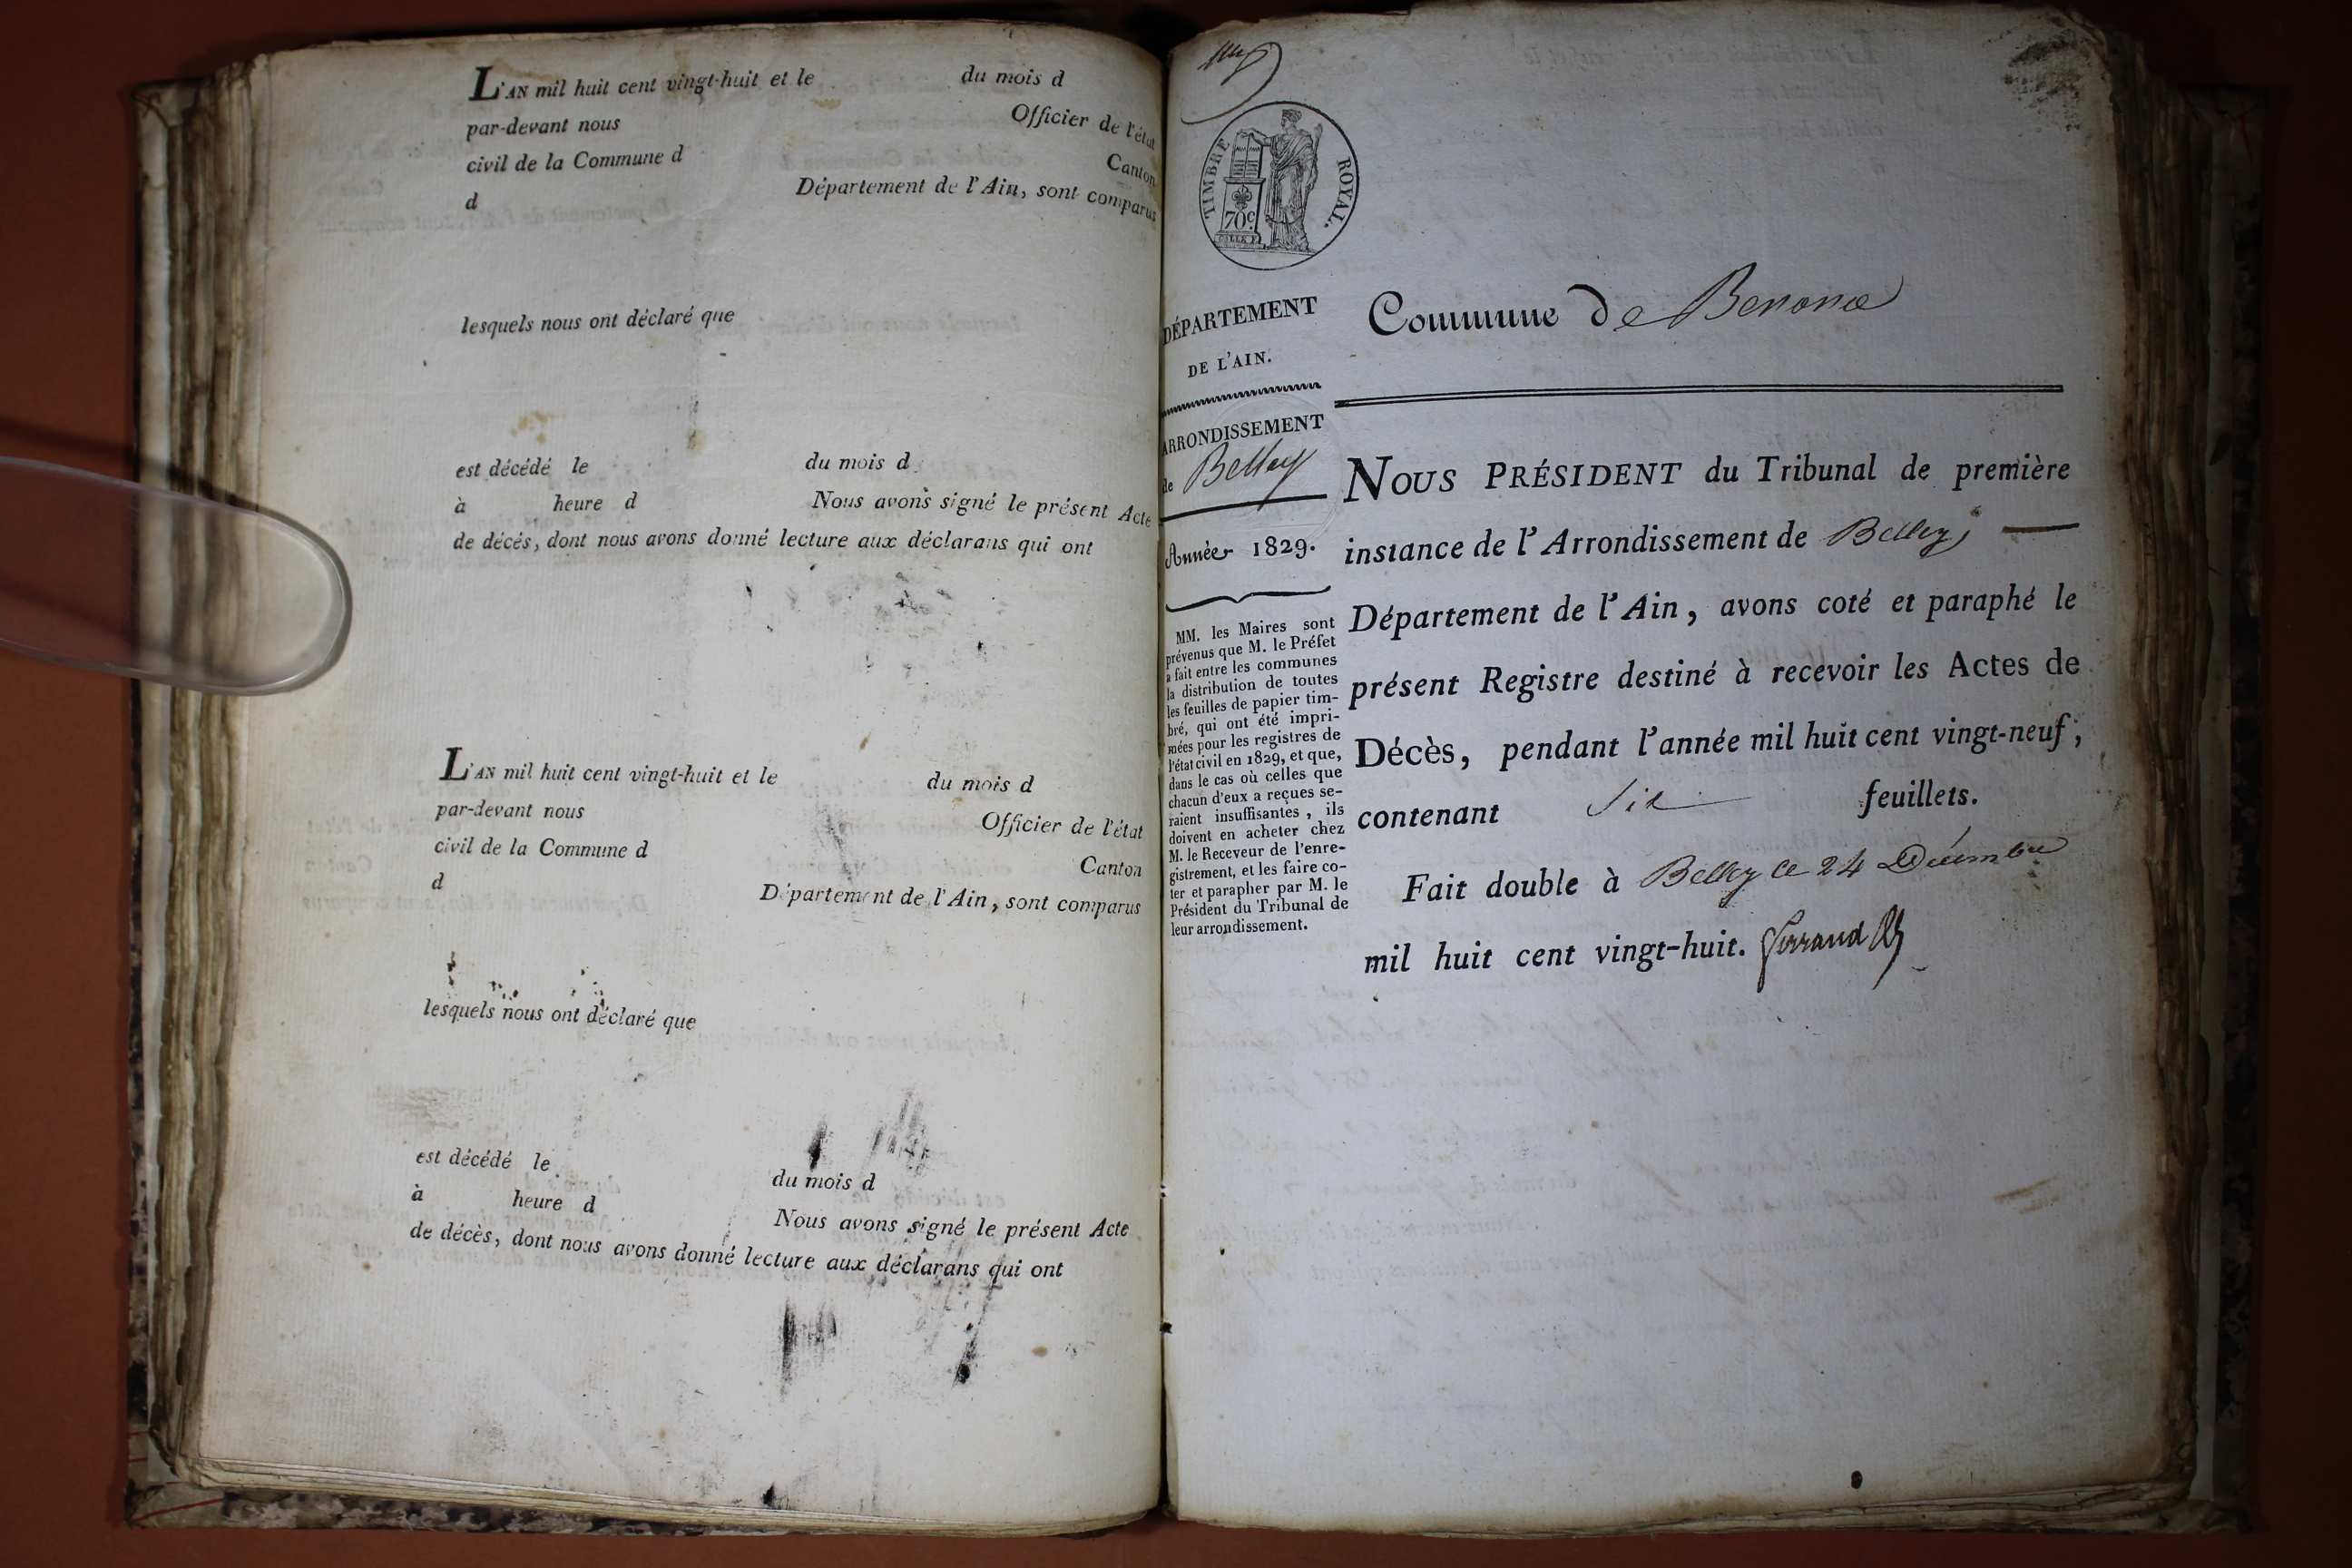 L'AN mil huit cent vingt-huit et le du mois d
par-devant nous Officier de l'état
civil de la Commune d Canton
d Département de l'Ain, sont comparus
lesquels nous ont déclaré que
est décédé le du mois d
à heure d Nous avons signé le présent Acte
de décès, dont nous avons donné lecture aux déclarans qui ont
L'AN mil huit cent vingt-huit et le du mois d
par-devant nous Officier de l'état
civil de la Commune d Canton
d Département de l'Ain, sont comparus
lesquels nous ont déclaré que
est décédé le du mois d
à heure d Nous avons signé le présent Acte
de décès, dont nous avons donné lecture aux déclarans qui ont
TIMBRE ROYAL.
70c.
DÉPARTEMENT
DE L'AIN.
ARRONDISSEMENT
de Belley
Année 1829.
MM. les Maires sont
prévenus que M. le Préfet
a fait entre les communes
la distribution de toutes
les feuilles de papier tim-
bré, qui ont été impri-
mées pour les registres de
l'état civil en 1829, et que,
dans le cas où celles que
chacun d'eux a reçues se-
raient insuffisantes, ils
doivent en acheter chez
M. le Receveur de l'enre-
gistrement, et les faire co-
ter et parapher par M. le
Président du Tribunal de
leur arrondissement.
Commune de Benonce
NOUS PRÉSIDENT du Tribunal de première
instance de l'Arrondissement de Belley,
Département de l'Ain, avons coté et paraphé le
présent Registre destiné à recevoir les Actes de
Décès, pendant l'année mil huit cent vingt-neuf;
contenant six feuillets.
Fait double à Belley le 24 Décembre
mil huit cent vingt-huit. Ferrand